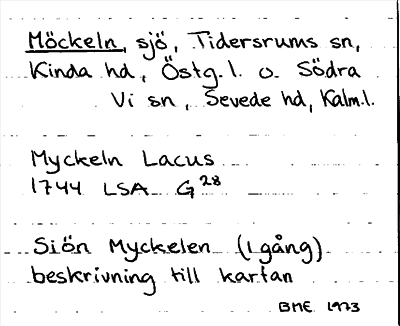 Möckeln, sjö, Tidersrums sn,
Kinda hd, Östg.l. o. Södra
Vi sn, Sevede hd, Kalm.l.
Myckeln Lacus
1744 LSA G28
Siön Myckelen (1 gång)
beskrivning till kartan
BME 1973